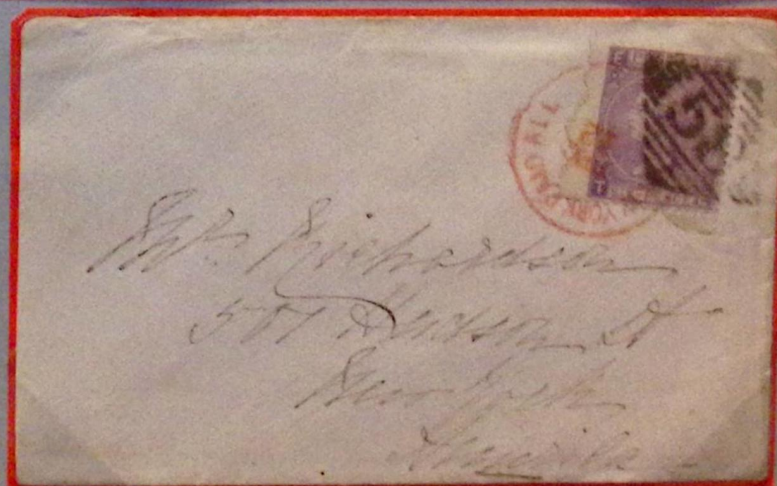 YORK PAID ALL
5
Mrs Richardson
507 Hudson St
New York
America